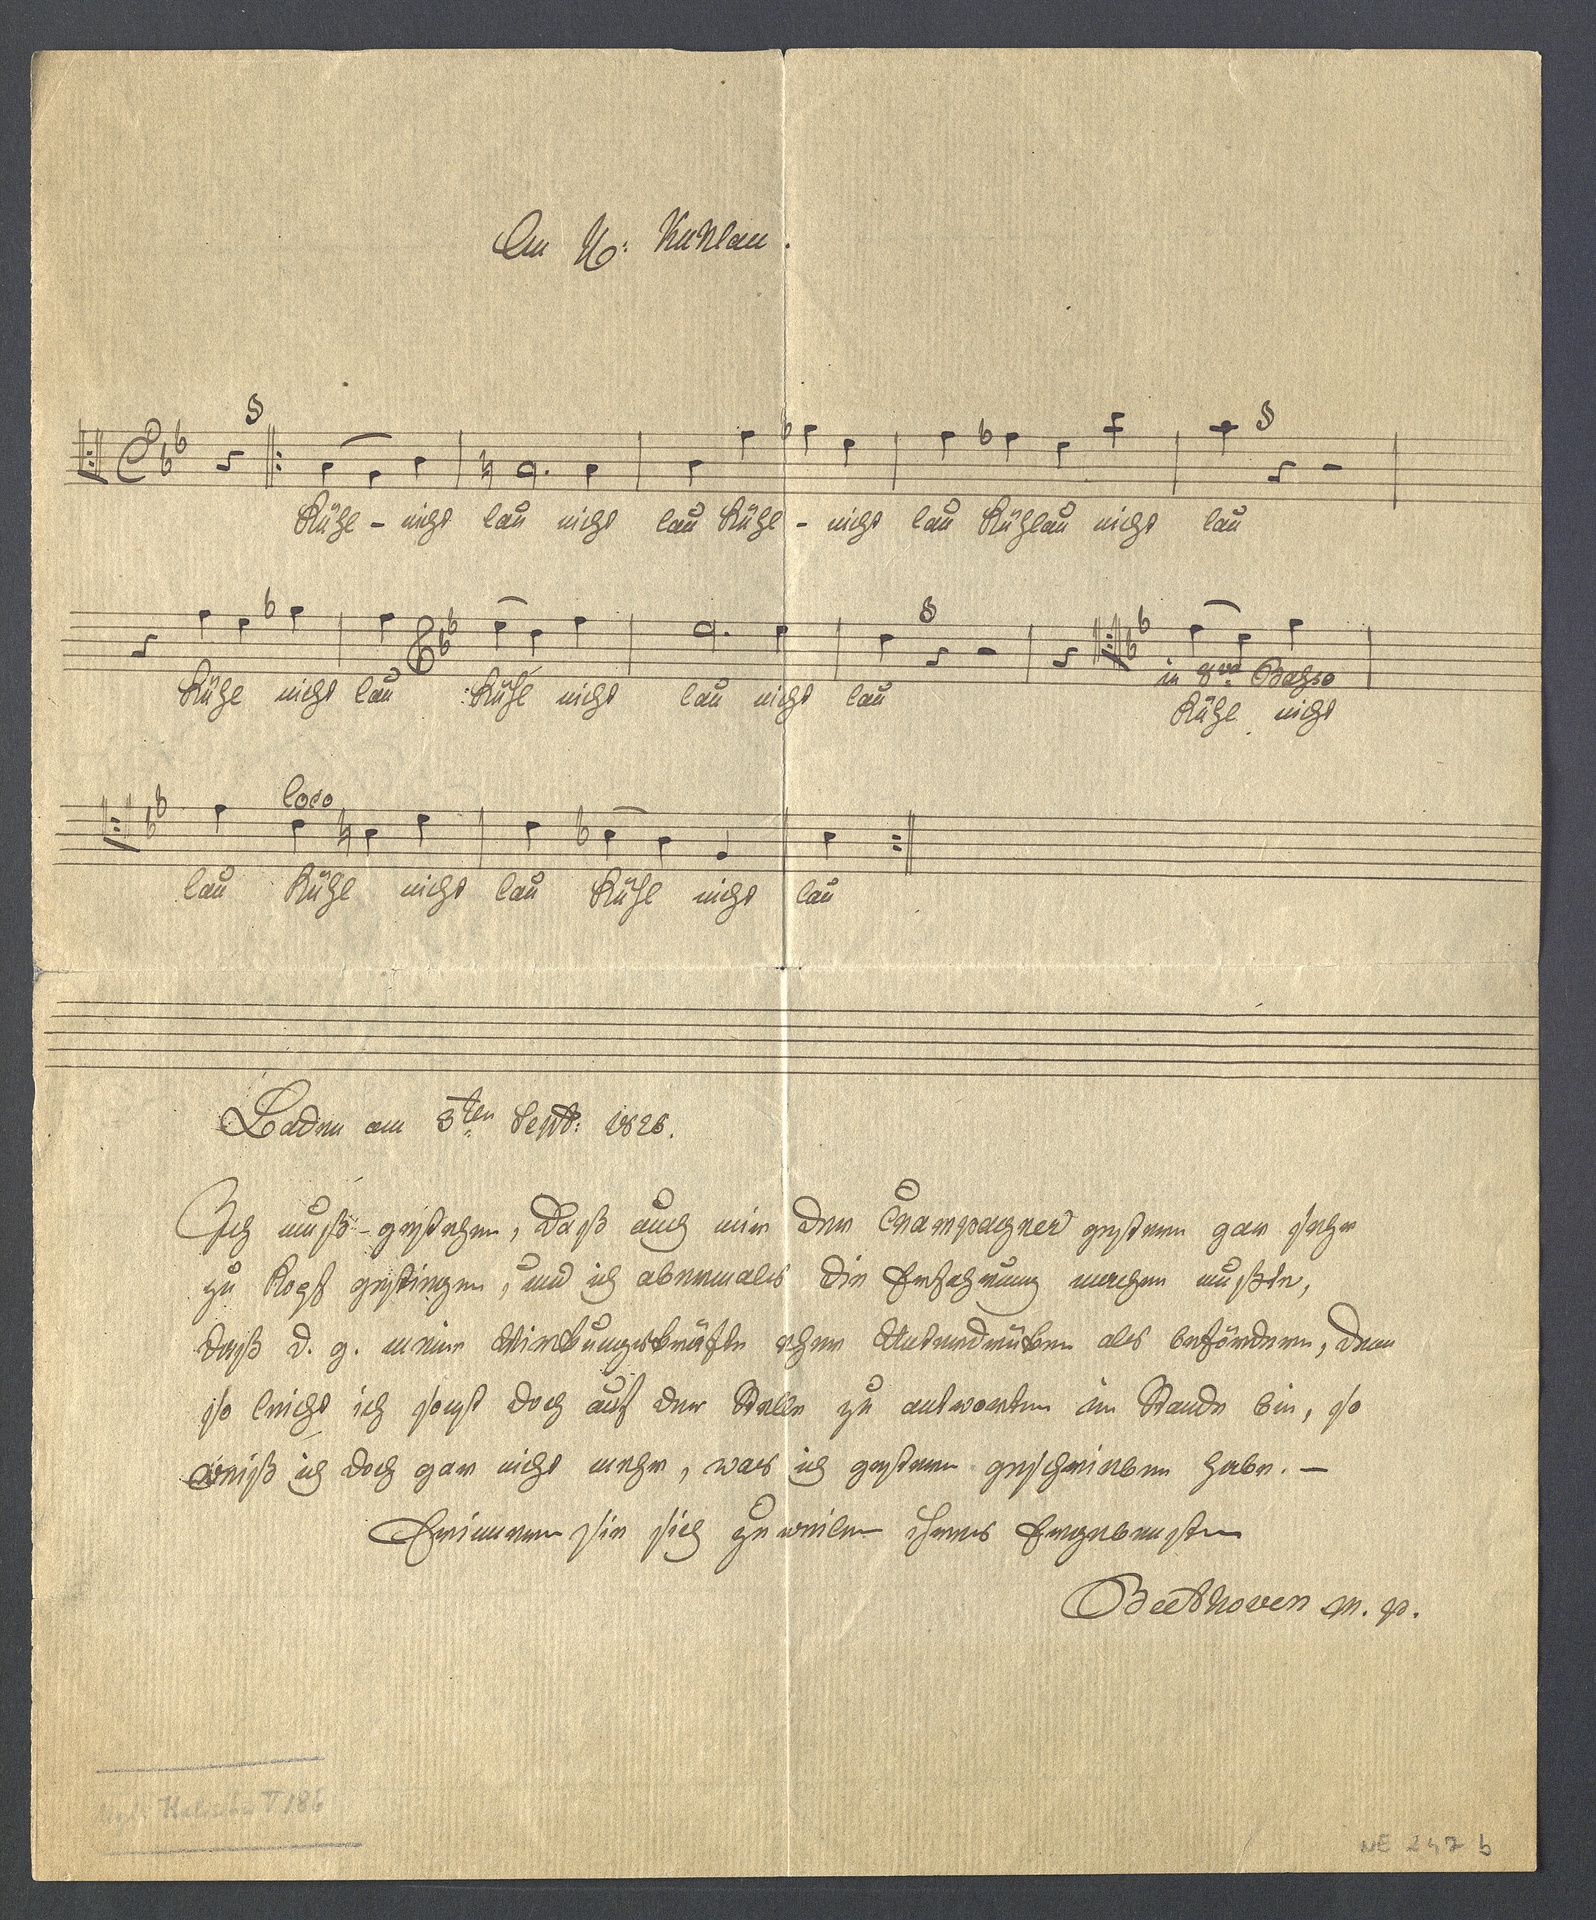 An H: Kuhlau.
Kühl - nicht lau nicht lau Kühl - nicht lau Kühlau nicht lau
Kühl nicht lau Kühl nicht lau nicht lau
in 8va Basso
Kühl nicht
loco
lau Kühl nicht lau Kühl nicht lau
Baden am 3ten Sept: 1825.
Ich muß gestehen, daß auch mir der Champagner gestern gar sehr
zu Kopf gestiegen, und ich abermals die Erfahrung machen mußte,
daß d. g. meine Wirkungskräfte eher Unterdrücken als befördern, denn
so leicht ich sonst doch auf der Stelle zu antworten im Stande bin, so
weiß ich doch gar nicht mehr, was ich gestern geschrieben habe. —
Erinnern sie sich zuweilen ihres Ergebensten
Beethoven m. p.
Kalischer V 186
NE 247 b